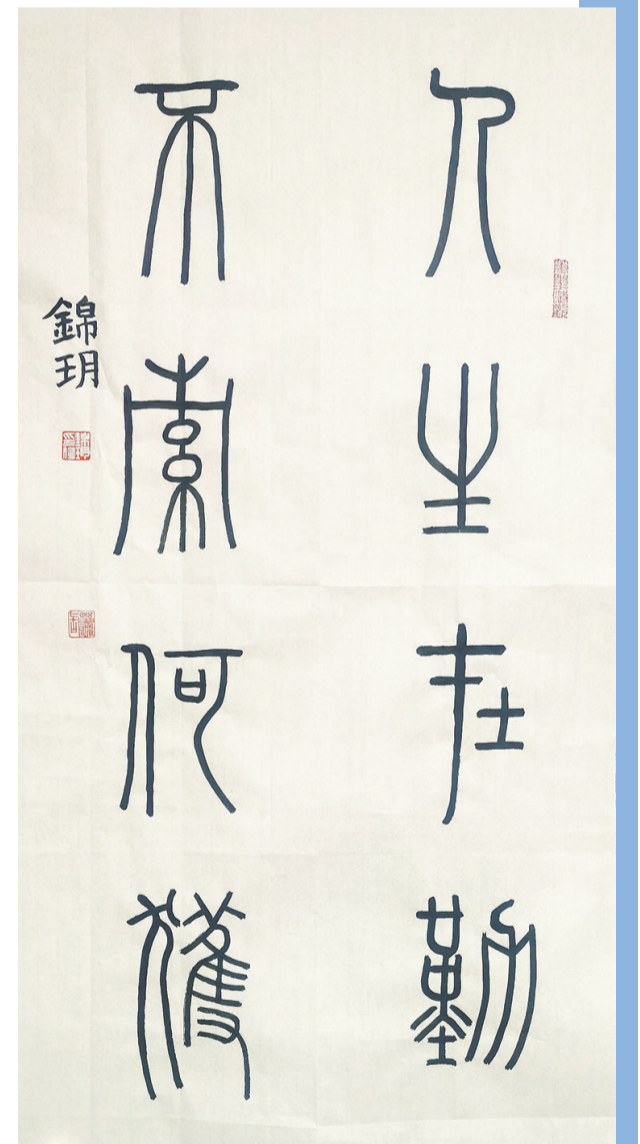 人生在勤
不索何獲
錦玥